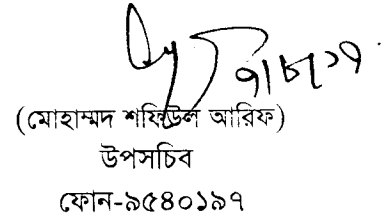 ৭।৮।১৭
(মোহাম্মদ শফিউল আরিফ)
উপসচিব
ফোন-৯৫৪০১৯৭